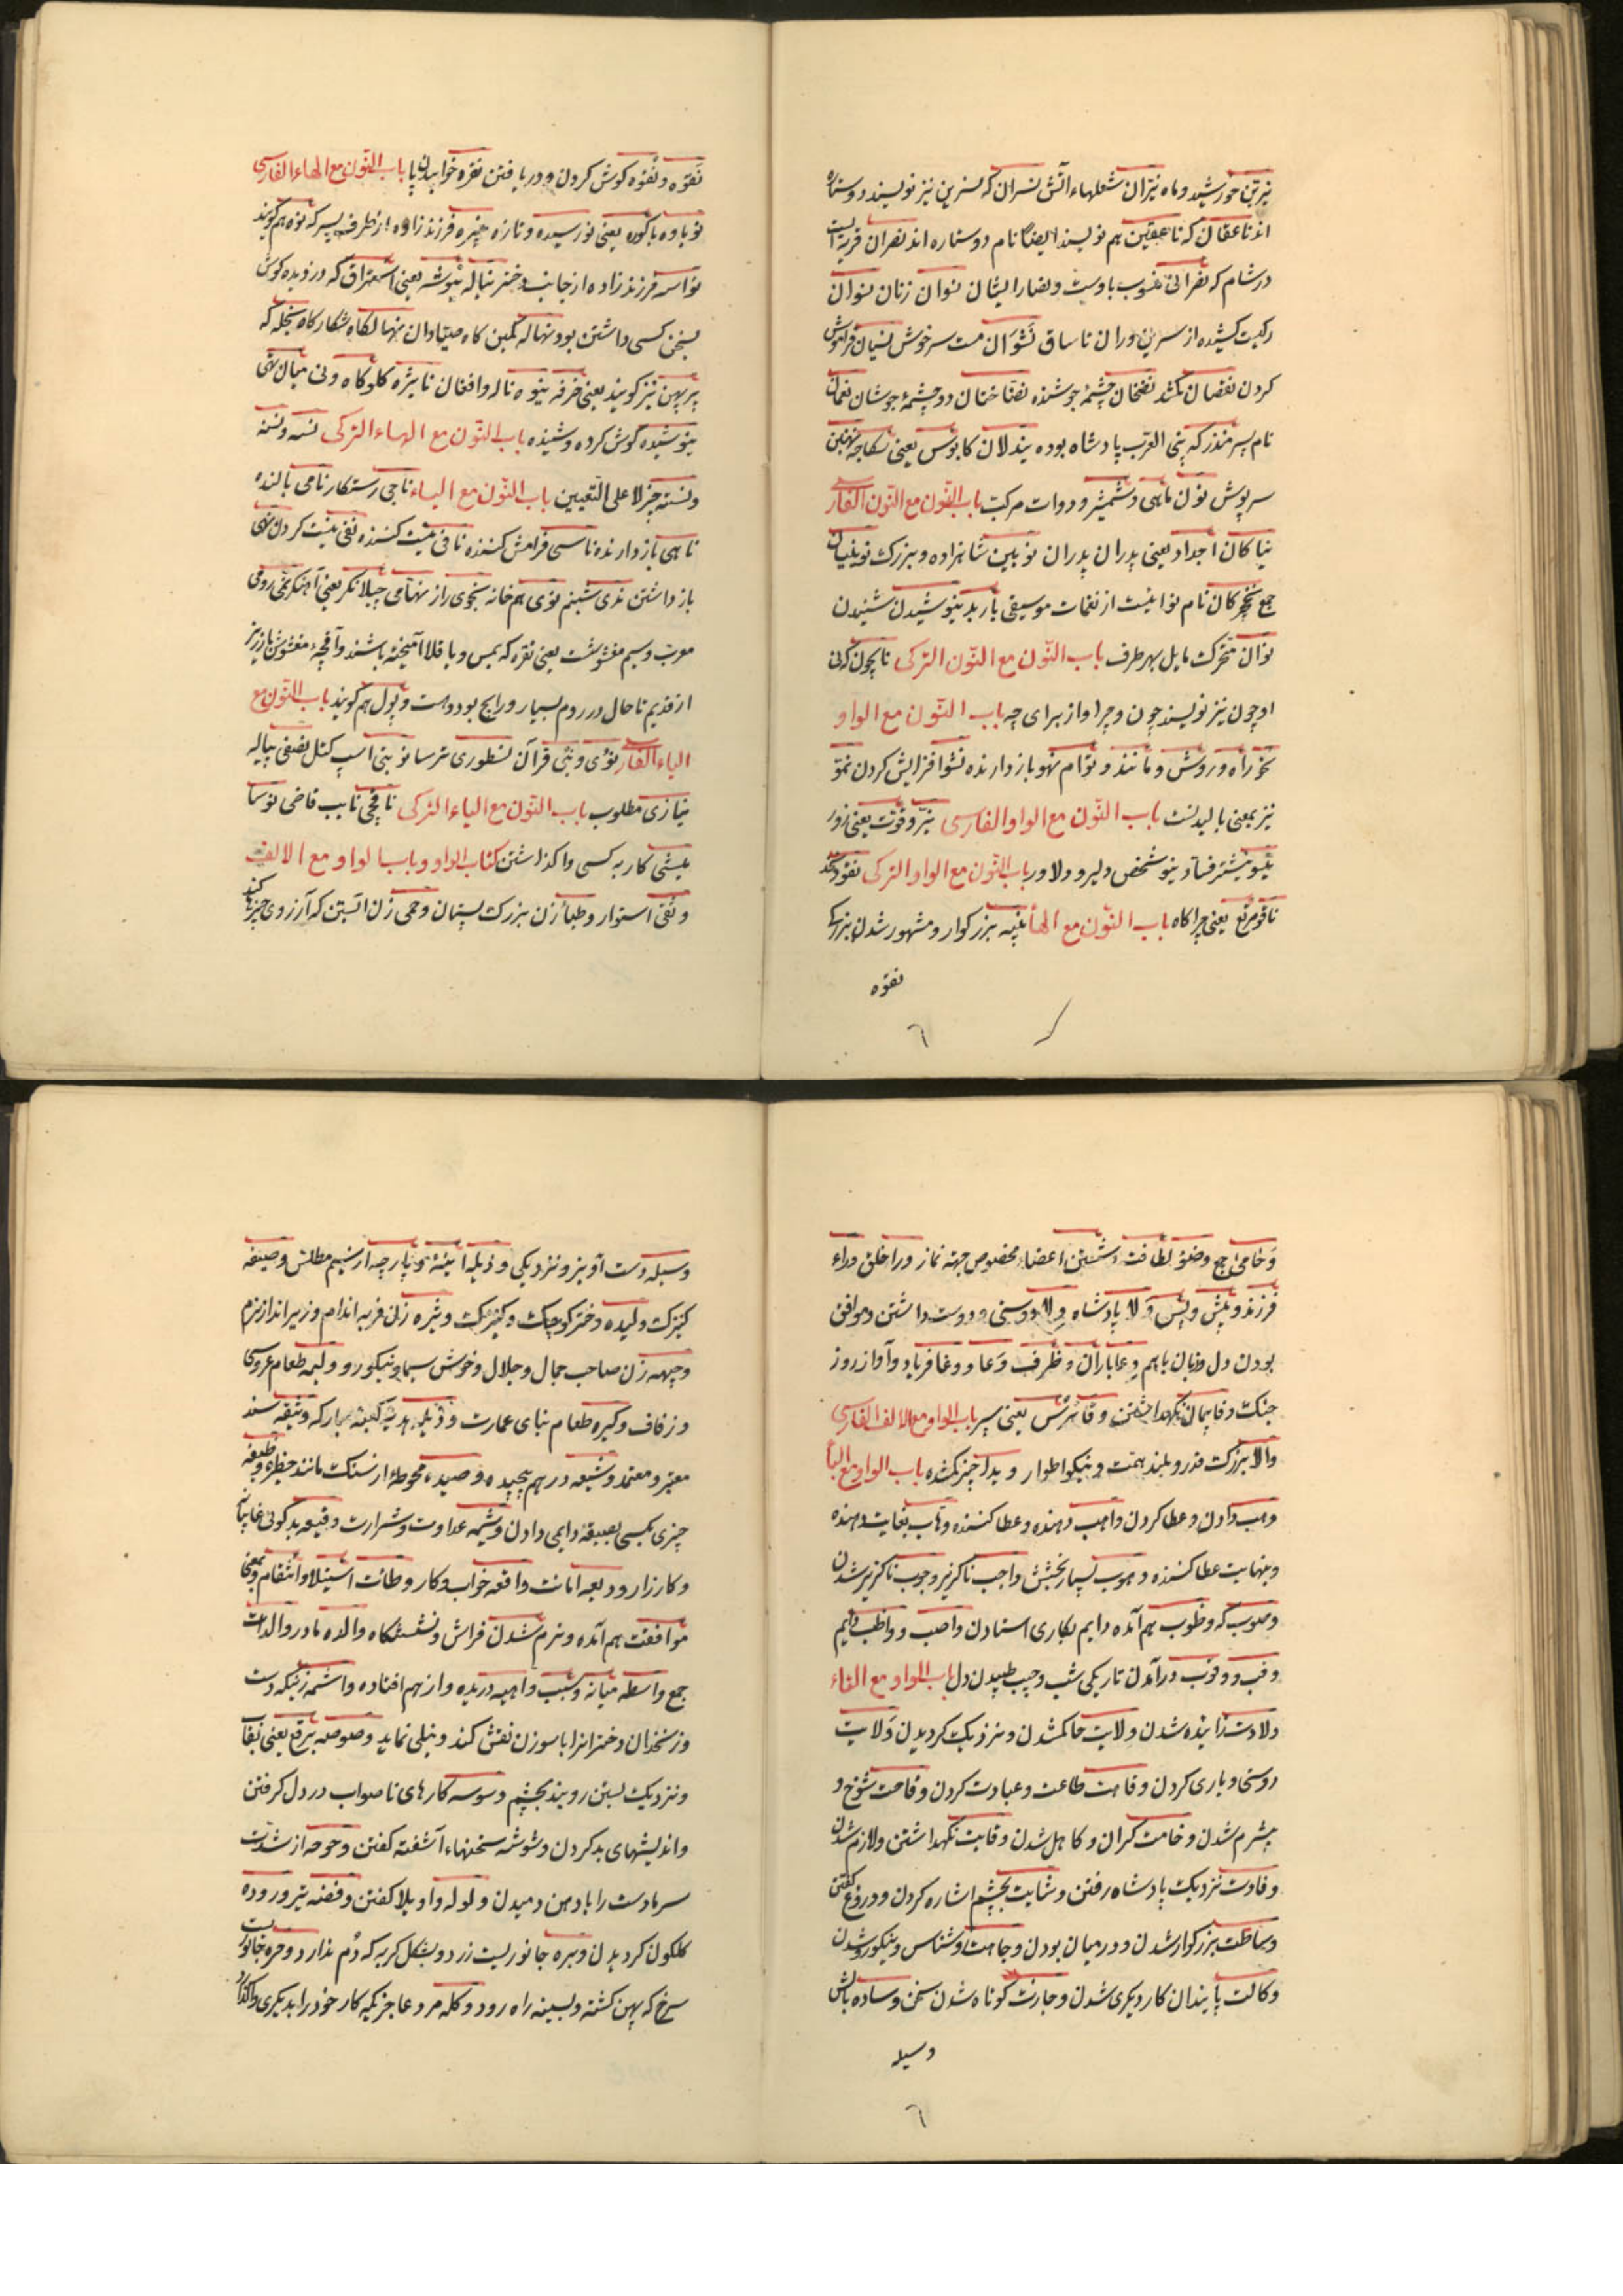 نیرین خورشید و ماه نیران شعلهاء آتش نسران که نسرین نیز نویسند دو ستاره
اند ناعقان که ناعقین هم نویسند ایضا نام دو ستاره اند نصران قریه ایست
در شام که نصرانی منسوب باوست و نصارا ایشان نسوان زنان نسوان
رکیت کشیده از سرین وران تا ساق نشوان مست سرخوش نسیان فراموش
کردن نقصان کمشد نضخان چشمهٔ جوشنده نضاختان دو چشمهٔ جوشان نعمان
نام پسر منذر که بنی العرب پادشاه بوده نیدلان کابوس یعنی نهنبن
سرپوش نون ماهی و شمشیر و دوات مرکب باب النون مع النون الفارسی
نیاکان اجداد یعنی پدران پدران نوبین شاهزاده و بزرک نوینیان
جمع نخچرکان نام نواییست از نغمات موسیقی باربد نیوشیدن شنیدن
نوان متحرک مایل بهر طرف باب النون مع النون الترکی ناچون کرنی
اوچون نیز نویسند چون و چرا و از برای چه باب النون مع الواو
نحو راه و روش و مانند و نوام نهو باز دارنده نشو افزایش کردن نمو
نیز بمعنی بالیدنست باب النون مع الواو الفارسی نیرو قوت یعنی زور
نیشو نیشتر فساد نیو شخص دلیر و دلاور باب النون مع الواو الترکی نقود
ناقو مرتع یعنی چراکاه باب النون مع الهاء نبیه بزرکوار و مشهور شدن
نقوه
نقوه و نقوه کوش کردن و دریافتن نقره خوابیدن پا باب النون مع الهاء الفارسی
نوباوه باکوره یعنی نو رسیده و تازه نبیره فرزند زاده از طرف پسر که نوه هم کویند
نواسه فرزند زاده از جانب دختر نباله نیوشه یعنی استراق که دزدیده کوش
بسخن کسی داشتن بود نهاله کمین کاه صیادان نهالکاه شکارکاه نیجله که
پرپهن نیز کویند یعنی خرفه نیوه ناله و افغان نایژه کلوکاه و نی میان تهی
نیوشیده کوش کرده و شنیده باب النون مع الهاء الترکی نسه و نسنه
و نسته چیز لا علی التعیین باب النون مع الیاء ناجی رستکار نامی بالنده
ناهی باز دارنده ناسی فرامش کننده نافی نیست کننده نفی نیست کردن نهی
باز داشتن ندی شبنم نوی هم خانه نجوی راز نهامی چیلانکر یعنی آهنکر نمی رومی
معرب و سیم مغشوشست یعنی نقره که بمس و یا قلا آمیخته باشند و آقچهٔ مغشوش
از قدیم تا حال در روم بسیار و رایج بود و هست و پول هم کویند باب النون مع
الیاء الفارسی نوی و نبی قرآن نسطوری ترسا نوبتی اسپ کتل نصفی پیاله
نیازی مطلوب باب النون مع الیاء الترکی نافچی نایب قاضی نوسا
یلشی کار به کسی واکذاشتن کتاب الواو و باب الواو مع الالف
وثقی استوار وطباء زن بزرک پستان وحمی زن آبستن که آرزوی چیزها کند
وخامی جمع وضوء لطافت و شستن اعضاء مخصوص جهة نماز ورا خلق وراء
فرزند و پیش و پس ولا پادشاه ولا دوستی و دوست داشتن و موافق
بودن دل و زبان باهم وعا باران و ظرف وعا و وغا فریاد و آواز روز
جنک وفا پیمان نکهداشتن وقا ترس یعنی سپر باب الواو مع الالف الفارسی
والا بزرک قدر و بلند همت و نیکو اطوار ویدا چیز کمشده باب الواو مع الباء
وهب دادن و عطا کردن واهب دهنده و عطا کننده وهاب بغایت دهنده
و بنهایت عطا کننده وهوب بسیار بخشش واجب ناکزیر وجوب ناکزیر شدن
وصوب که وظوب هم آمده دایم بکاری استادن واصب و واظب دایم
وقب و وقوب درآمدن تاریکی شب وجیب طپیدن دل باب الواو مع التاء
ولادت زاینده شدن ولایت حاکمشدن و نزدیک کردیدن ولایت
دوستی و یاری کردن وقاهت طاعت و عبادت کردن وقاحت شوخ و
بیشرم شدن وخامت کران و کاهل شدن وقایت نکهداشتن و لازم شدن
وفادت نزدیک پادشاه رفتن وشایت بچشم اشاره کردن و دروغ کفتن
وساطت بزرکوار شدن و در میان بودن وجاهت روشناس و نیکورو شدن
وکالت پایندان کار دیکری شدن وجازت کوتاه شدن سخن وساده بالش
وسیله
وسیله دست آویز و نزدیکی وذیله آینه و پارچه از سیم مطلق وصیفه
کنیزک ولیده دختر کوچک و کنیزک وثیره زن فربه اندام و زیر انداز نرم
وجیهه زن صاحب جمال و جلال و خوش سیما و نیکورو ولیمه طعام عروسی
و زفاف وکیره طعام بنای عمارت ودیله هدیه کعبه مبارکه وثیقه سند
معتبر و معتمد وشیعه درهم پیچیده وصیده محوطهٔ از سنک مانند حظیره وظیفه
چیزی بکسی بصیغهٔ دایمی دادن وشیمه عداوت و شرارت وقیعه بد کوئی غایبانه
و کارزار ودیعه امانت واقعه خواب و کار وطائت استیلا و انتقام و بمعنی
موافقت هم آمده و نرم شدن فراش و نشستکاه والده مادر والدات
جمع واسطه میانه و سبب واهیه دریده و از هم افتاده واشمه زنیکه دست
و زنخدان دختران را با سوزن نقش کند و نیلی نماید وصوصه برقع یعنی نقاب
و نزدیک بستن روبند بچشم وسوسه کارهای ناصواب در دل کرفتن
و اندیشهای بد کردن وشوشه سخنهاء آشفته کفتن وحوحه از شدت
سرما دست را با دهن دمیدن ولوله واویلا کفتن وقصه
کلکون کردیدن وبره جانوریست زرد و بشکل کربه که دم ندارد وحره جانوریست
سرخ که پهن کشته و بسینه راه رود وکله مرد عاجز یکه کار خود را بدیکری واکذارد